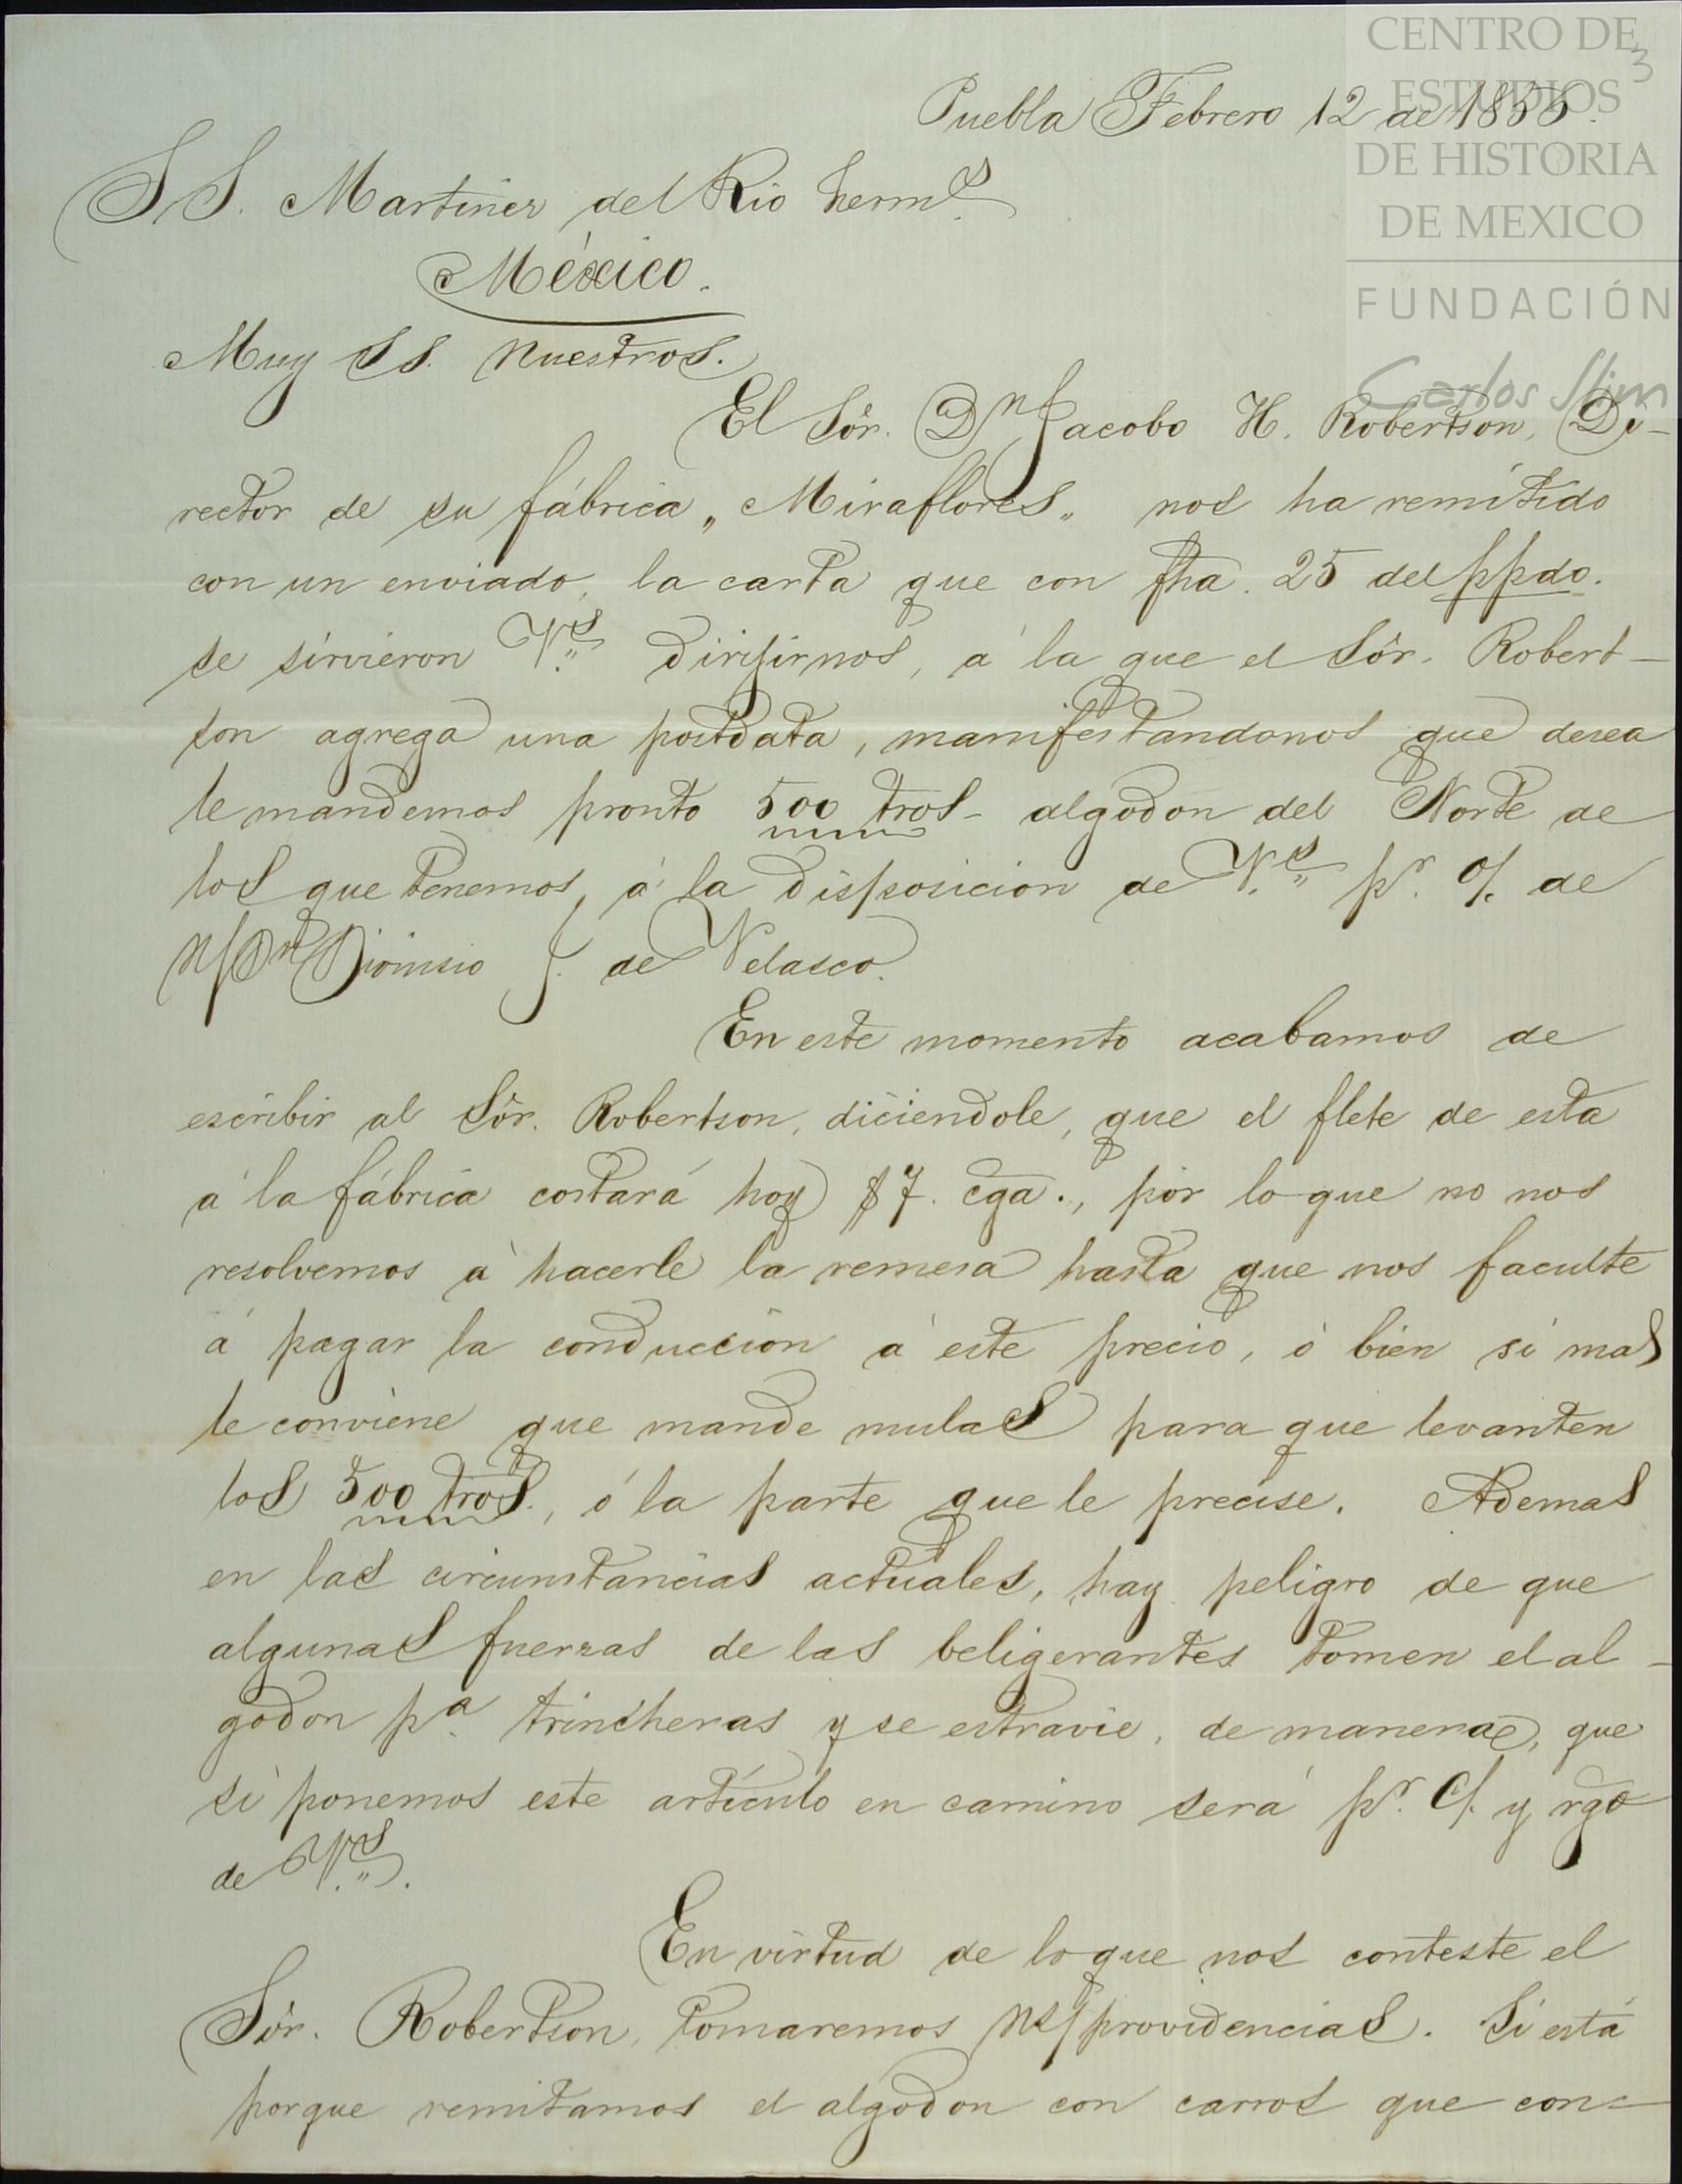 CENTRO DE
ESTUDIOS
DE HISTORIA
DE MEXICO
FUNDACIÓN
Carlos Slim
3
Puebla Febrero 12 de 1856.
SS. Martinez del Rio herms.
México.
Muy SS. nuestros.
El Sôr. Dn Jacobo H. Robertson, Di-
rector de su fábrica „Miraflores„ nos ha remitido
con un enviado, la carta que con fha. 25 del ppdo.
se sirvieron Vs. dirijirnos, á la que el Sôr. Robert-
son agrega una postdata, manifestandonos que desea
le mandemos pronto 500 tros- algodon del Norte de
los que tenemos, á la disposicion de Vs. pr. o/. de
N/ Dn Dionisio J. de Velasco.
En este momento acabamos de
escribir al Sôr. Robertson, diciendole, que el flete de esta
á la fábrica costará hoy $7. cga., por lo que no nos
resolvemos á hacerle la remesa hasta que nos faculte
á pagar la conduccion á este precio, ó bien si mas
le conviene que mande mulas para que levanten
los 500 tros., ó la parte que le precise. Ademas
en las circunstancias actuales, hay peligro de que
algunas fuerzas de las beligerantes tomen el al-
godon pa. trincheras y se estravie, de manera, que
si ponemos este artículo en camino será pr. C/. y rgo
de Vs.
En virtud de lo que nos conteste el
Sôr. Robertson, tomaremos ns/ providencias. Si está
porque remitamos el algodon con carros que con-